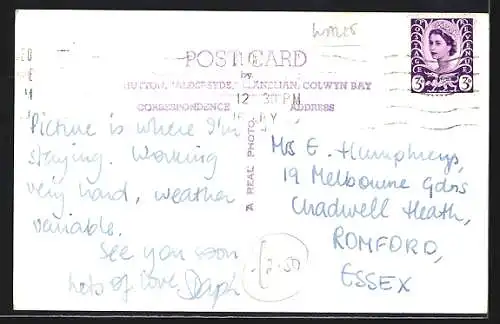 POST CARD
by
HUTTON, LLANELIAN, COLWYN BAY
12 30 PM
CORRESPONDENCE ADDRESS
A REAL PHOTO.
3D 3D
Picture is where I'm
staying. Working
very hard, weather
variable.
See you soon
Lots of love Daph
Mrs E. Humphreys,
19 Melbourne Gdns
Chadwell Heath,
ROMFORD,
ESSEX